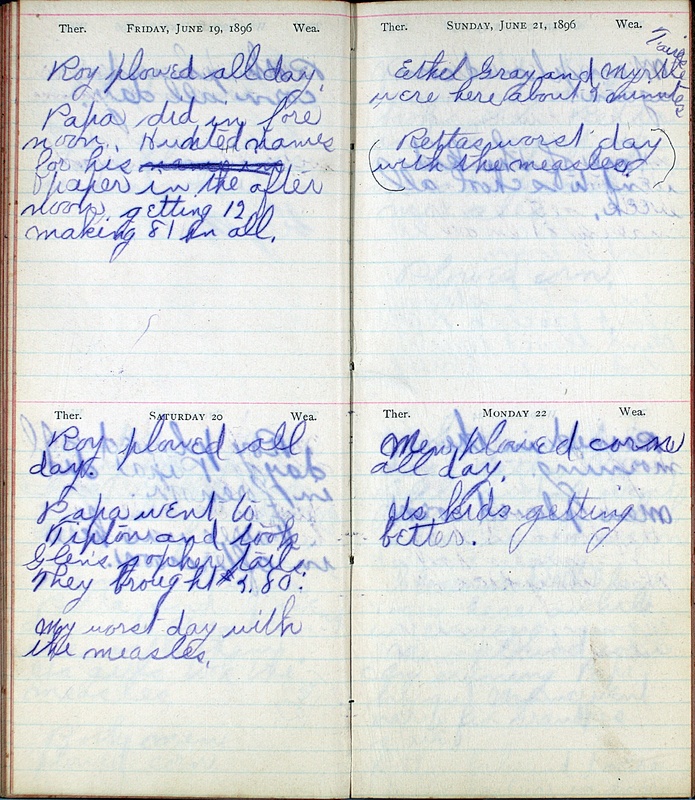 Ther. FRIDAY, JUNE 19, 1896 Wea.
Roy plowed all day.
Papa did in fore
noon. Hunted names
for his
paper in the after
noon, getting 12,
making 81 in all.
Ther. SATURDAY 20 Wea.
Roy plowed all
day.
Papa went to
Tipton and took
Glen's gopher tails.
They brought $3.80.
My worst day with
the measles.
Ther. SUNDAY, JUNE 21, 1896 Wea.
Ethel Gray and Myrtle
were here about 5 minutes
Rettas worst day
(with the measles.)
Ther. MONDAY 22 Wea.
Men plowed corn
all day.
Us kids getting
better.